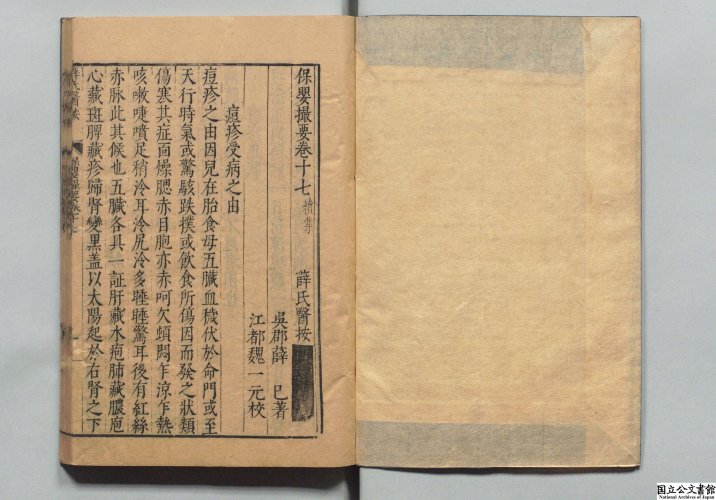 保嬰撮要卷十七
薛氏醫按
吳郡薛 已著
江都魏一元校
痘疹受病之由
痘疹之由因兒在胎食母五臟血穢伏於命門或至
天行時氣或驚駭跌撲或飲食所傷因而發之狀類
傷寒其症面燥腮赤目胞亦赤呵欠煩悶乍涼乍熱
咳嗽啑噴足稍冷耳冷尻冷多睡睡驚耳後有紅絲
赤脉此其候也五臟各具一証肝藏水疱肺藏膿疱
心藏斑脾藏疹歸腎變黑盖以太陽起於右腎之下
国立公文書館
National Archives of Japan